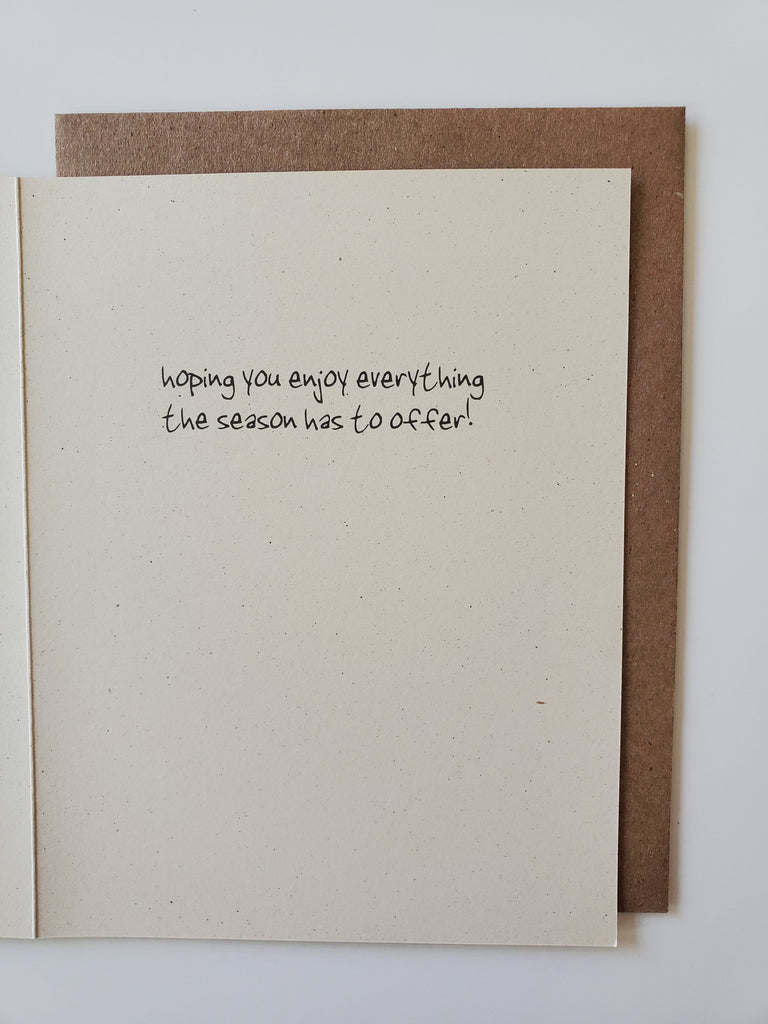 hoping you enjoy everything
the season has to offer!